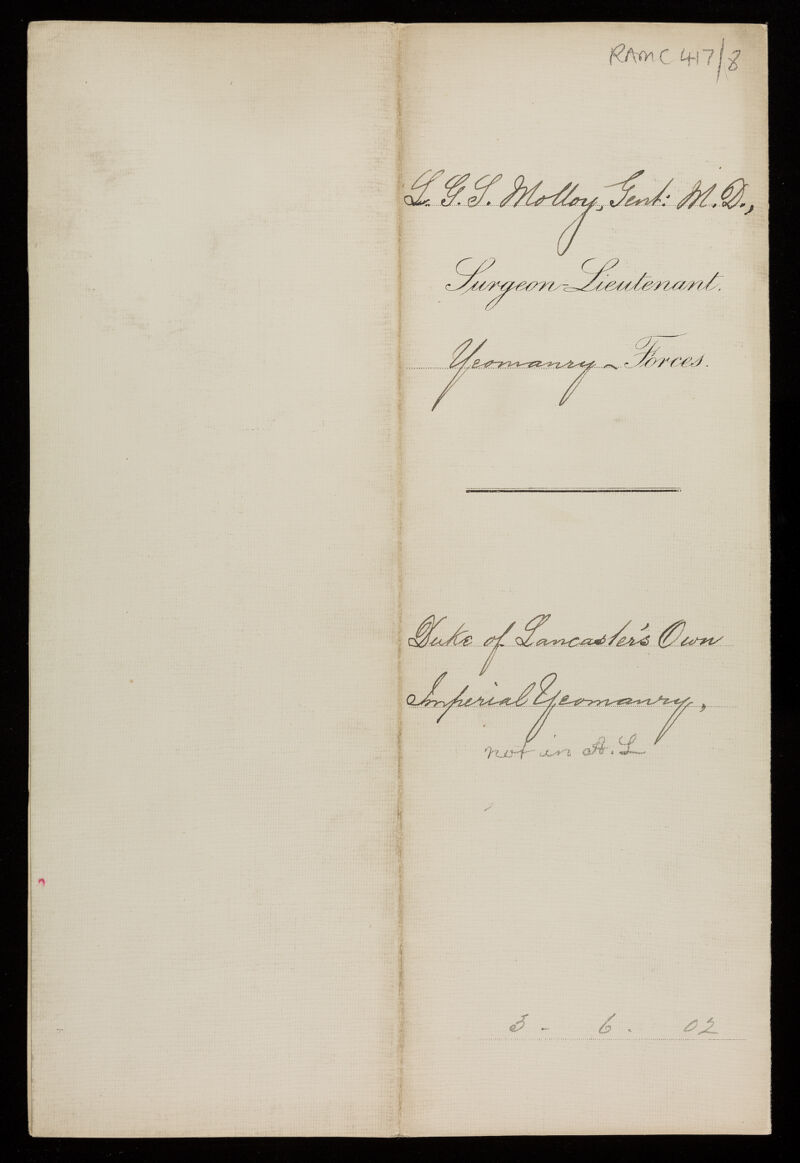 RAMC 417/8
L. G. S. Molloy, Gent: M.D.,
Surgeon-Lieutenant.
Yeomanry - Forces.
Duke of Lancaster's Own
Imperial Yeomanry,
not in A.L
3 - 6 - 02